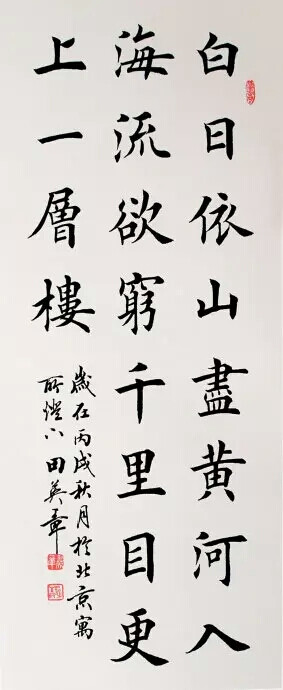 白日依山盡黃河入
海流欲窮千里目更
上一層樓
歲在丙戌秋月於北京寓
所燈下田英章